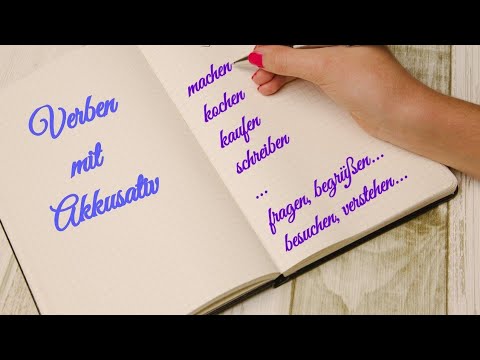 Verben
mit
Akkusativ
machen
kochen
kaufen
schreiben
...
fragen, begrüßen...
besuchen, verstehen...